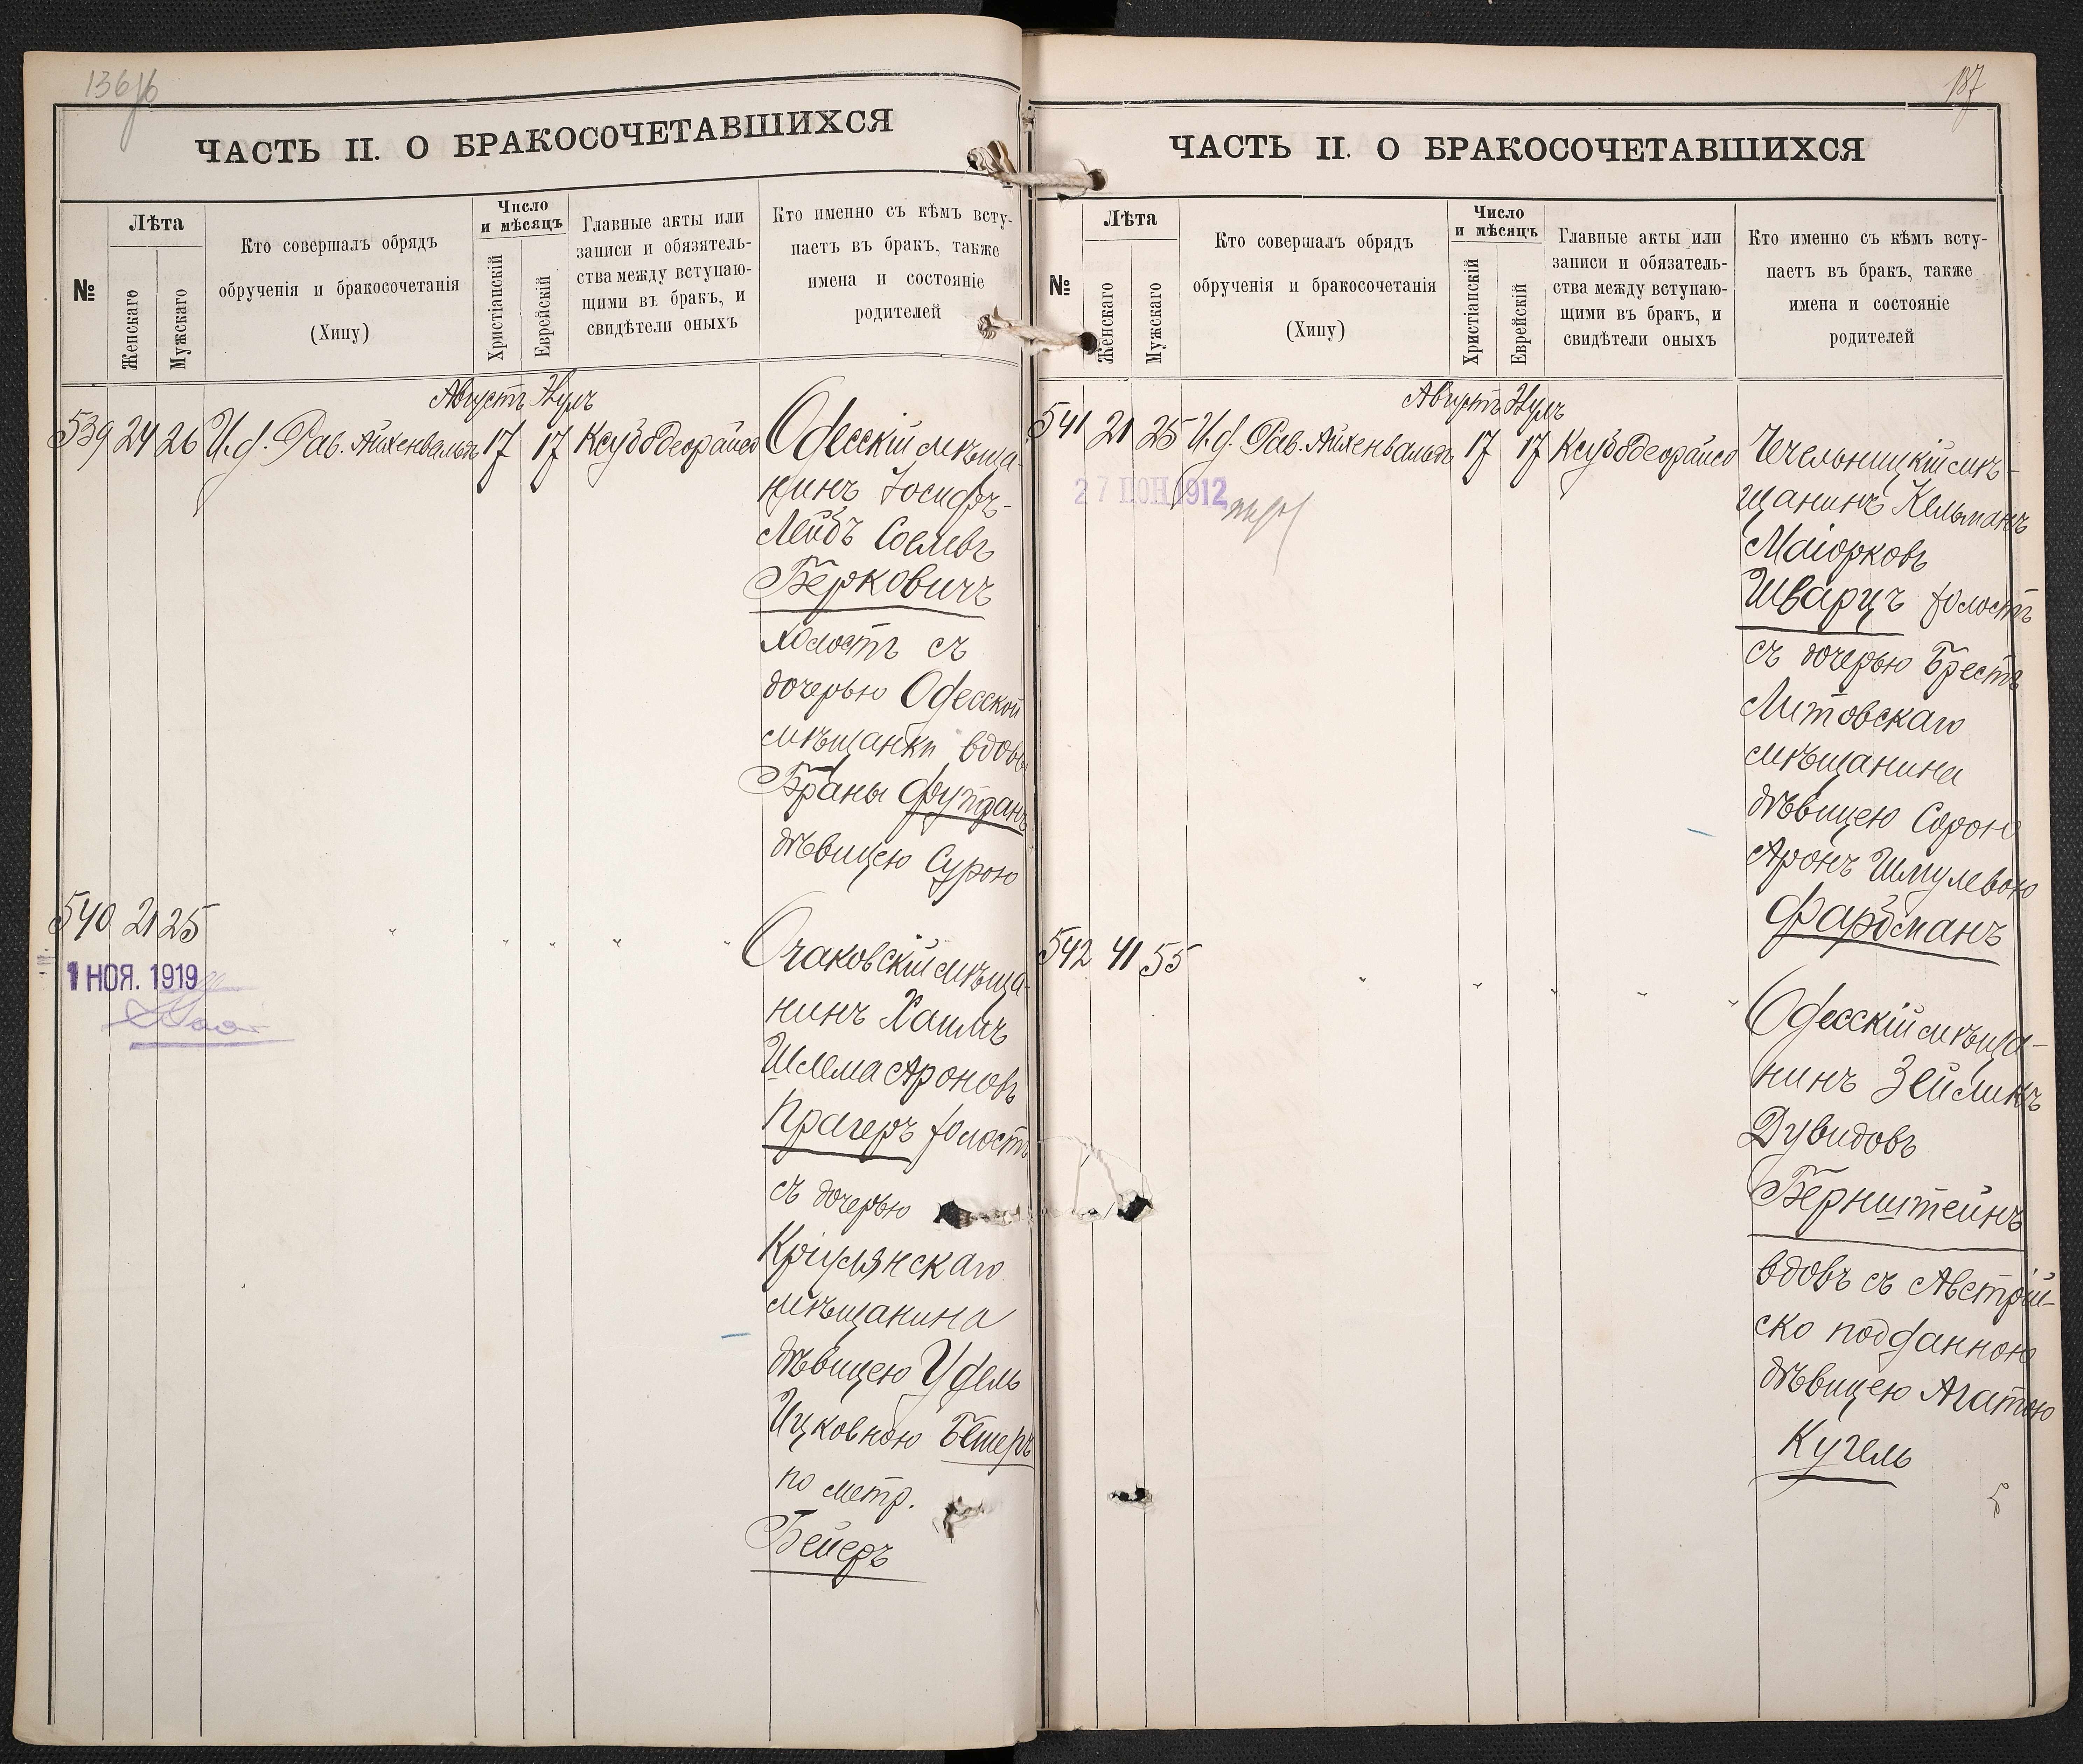 136
ЧАСТЬ II. О БРАКОСОЧЕТАВШИХСЯ
№
Лѣта
Женскаго
Мужскаго
Кто совершалъ обрядъ
обрученія и бракосочетанія
(Хипу)
Число
и мѣсяцъ
Христіанскій
Еврейскій
Главные акты или
записи и обязятель-
ства между вступаю-
щими въ бракъ, и
свидѣтели оныхъ
Кто именно съ кѣмъ всту-
паетъ въ бракъ, также
имена и состояніе
родителей
Августъ
539 24 26 И.д. Рав. Айхенвальдъ 17 17
Одесскій мѣща-
нинъ Іосифъ-
Лейбъ
Берковичъ
холостъ съ
дочерью Одесской
мѣщанки вдовы
Браны
дѣвицею Сурою
540 21 25
1 НОЯ. 1919
Очаковскій мѣща-
нинъ Хаимъ
Шлема Ароновъ
Прагеръ холостъ
съ дочерью
мѣщанина
дѣвицею Удель
Ицковною
по метр.
Бейеръ
137
ЧАСТЬ II. О БРАКОСОЧЕТАВШИХСЯ
№
Лѣта
Женскаго
Мужскаго
Кто совершалъ обрядъ
обрученія и бракосочетанія
(Хипу)
Число
и мѣсяцъ
Христіанскій
Еврейскій
Главные акты или
записи и обязатель-
ства между вступаю-
щими въ бракъ, и
свидѣтели оныхъ
Кто именно съ кѣмъ всту-
паетъ въ бракъ, также
имена и состояніе
родителей
Августъ
541 21 25 И.д. Рав. Айхенвальдъ 17 17
27 1912
Чечельницкій мѣ-
щанинъ Кельманъ
Маіорковъ
Шварцъ холостъ
съ дочерью Брестъ
Литовскаго
мѣщанина
дѣвицею Сорою
Аронъ Шмулевою
Фарбманъ
542 41 55
Одесскій мѣща-
нинъ Зейликъ
Дувидовъ
Бернштейнъ
вдовъ съ Австрій-
ско подданною
дѣвицею Агатою
Кугель